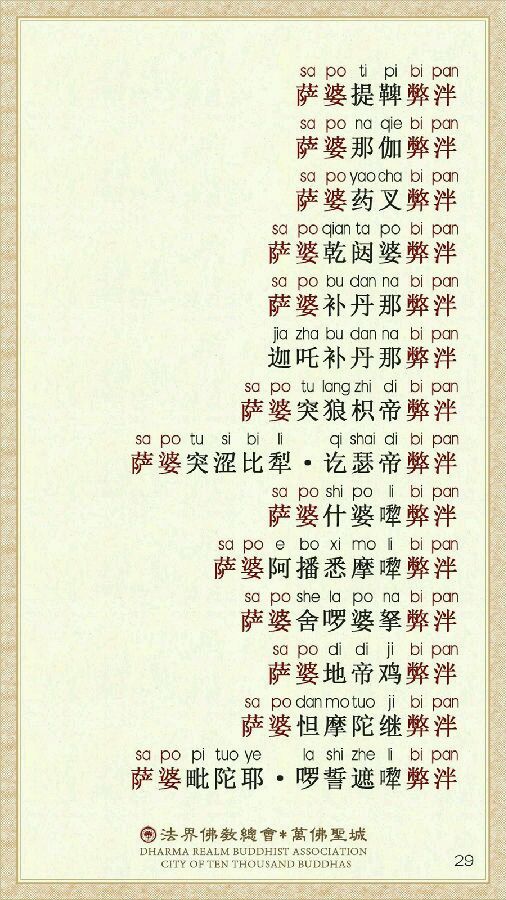 sa po ti pi bi pan
萨婆提鞞弊泮
sa po na qie bi pan
萨婆那伽弊泮
sa po yao cha bi pan
萨婆药叉弊泮
sa po qian ta po bi pan
萨婆乾闼婆弊泮
sa po bu dan na bi pan
萨婆补丹那弊泮
jia zha bu dan na bi pan
迦吒补丹那弊泮
sa po tu lang zhi di bi pan
萨婆突狼枳帝弊泮
sa po tu si bi li qi shai di bi pan
萨婆突涩比犁・讫瑟帝弊泮
sa po shi po li bi pan
萨婆什婆㗚弊泮
sa po e bo xi mo li bi pan
萨婆阿播悉摩㗚弊泮
sa po she la po na bi pan
萨婆舍啰婆拏弊泮
sa po di di ji bi pan
萨婆地帝鸡弊泮
sa po dan mo tuo ji bi pan
萨婆怛摩陀继弊泮
sa po pi tuo ye la shi zhe li bi pan
萨婆毗陀耶・啰誓遮㗚弊泮
法界佛教總會*萬佛聖城
DHARMA REALM BUDDHIST ASSOCIATION
CITY OF TEN THOUSAND BUDDHAS
29